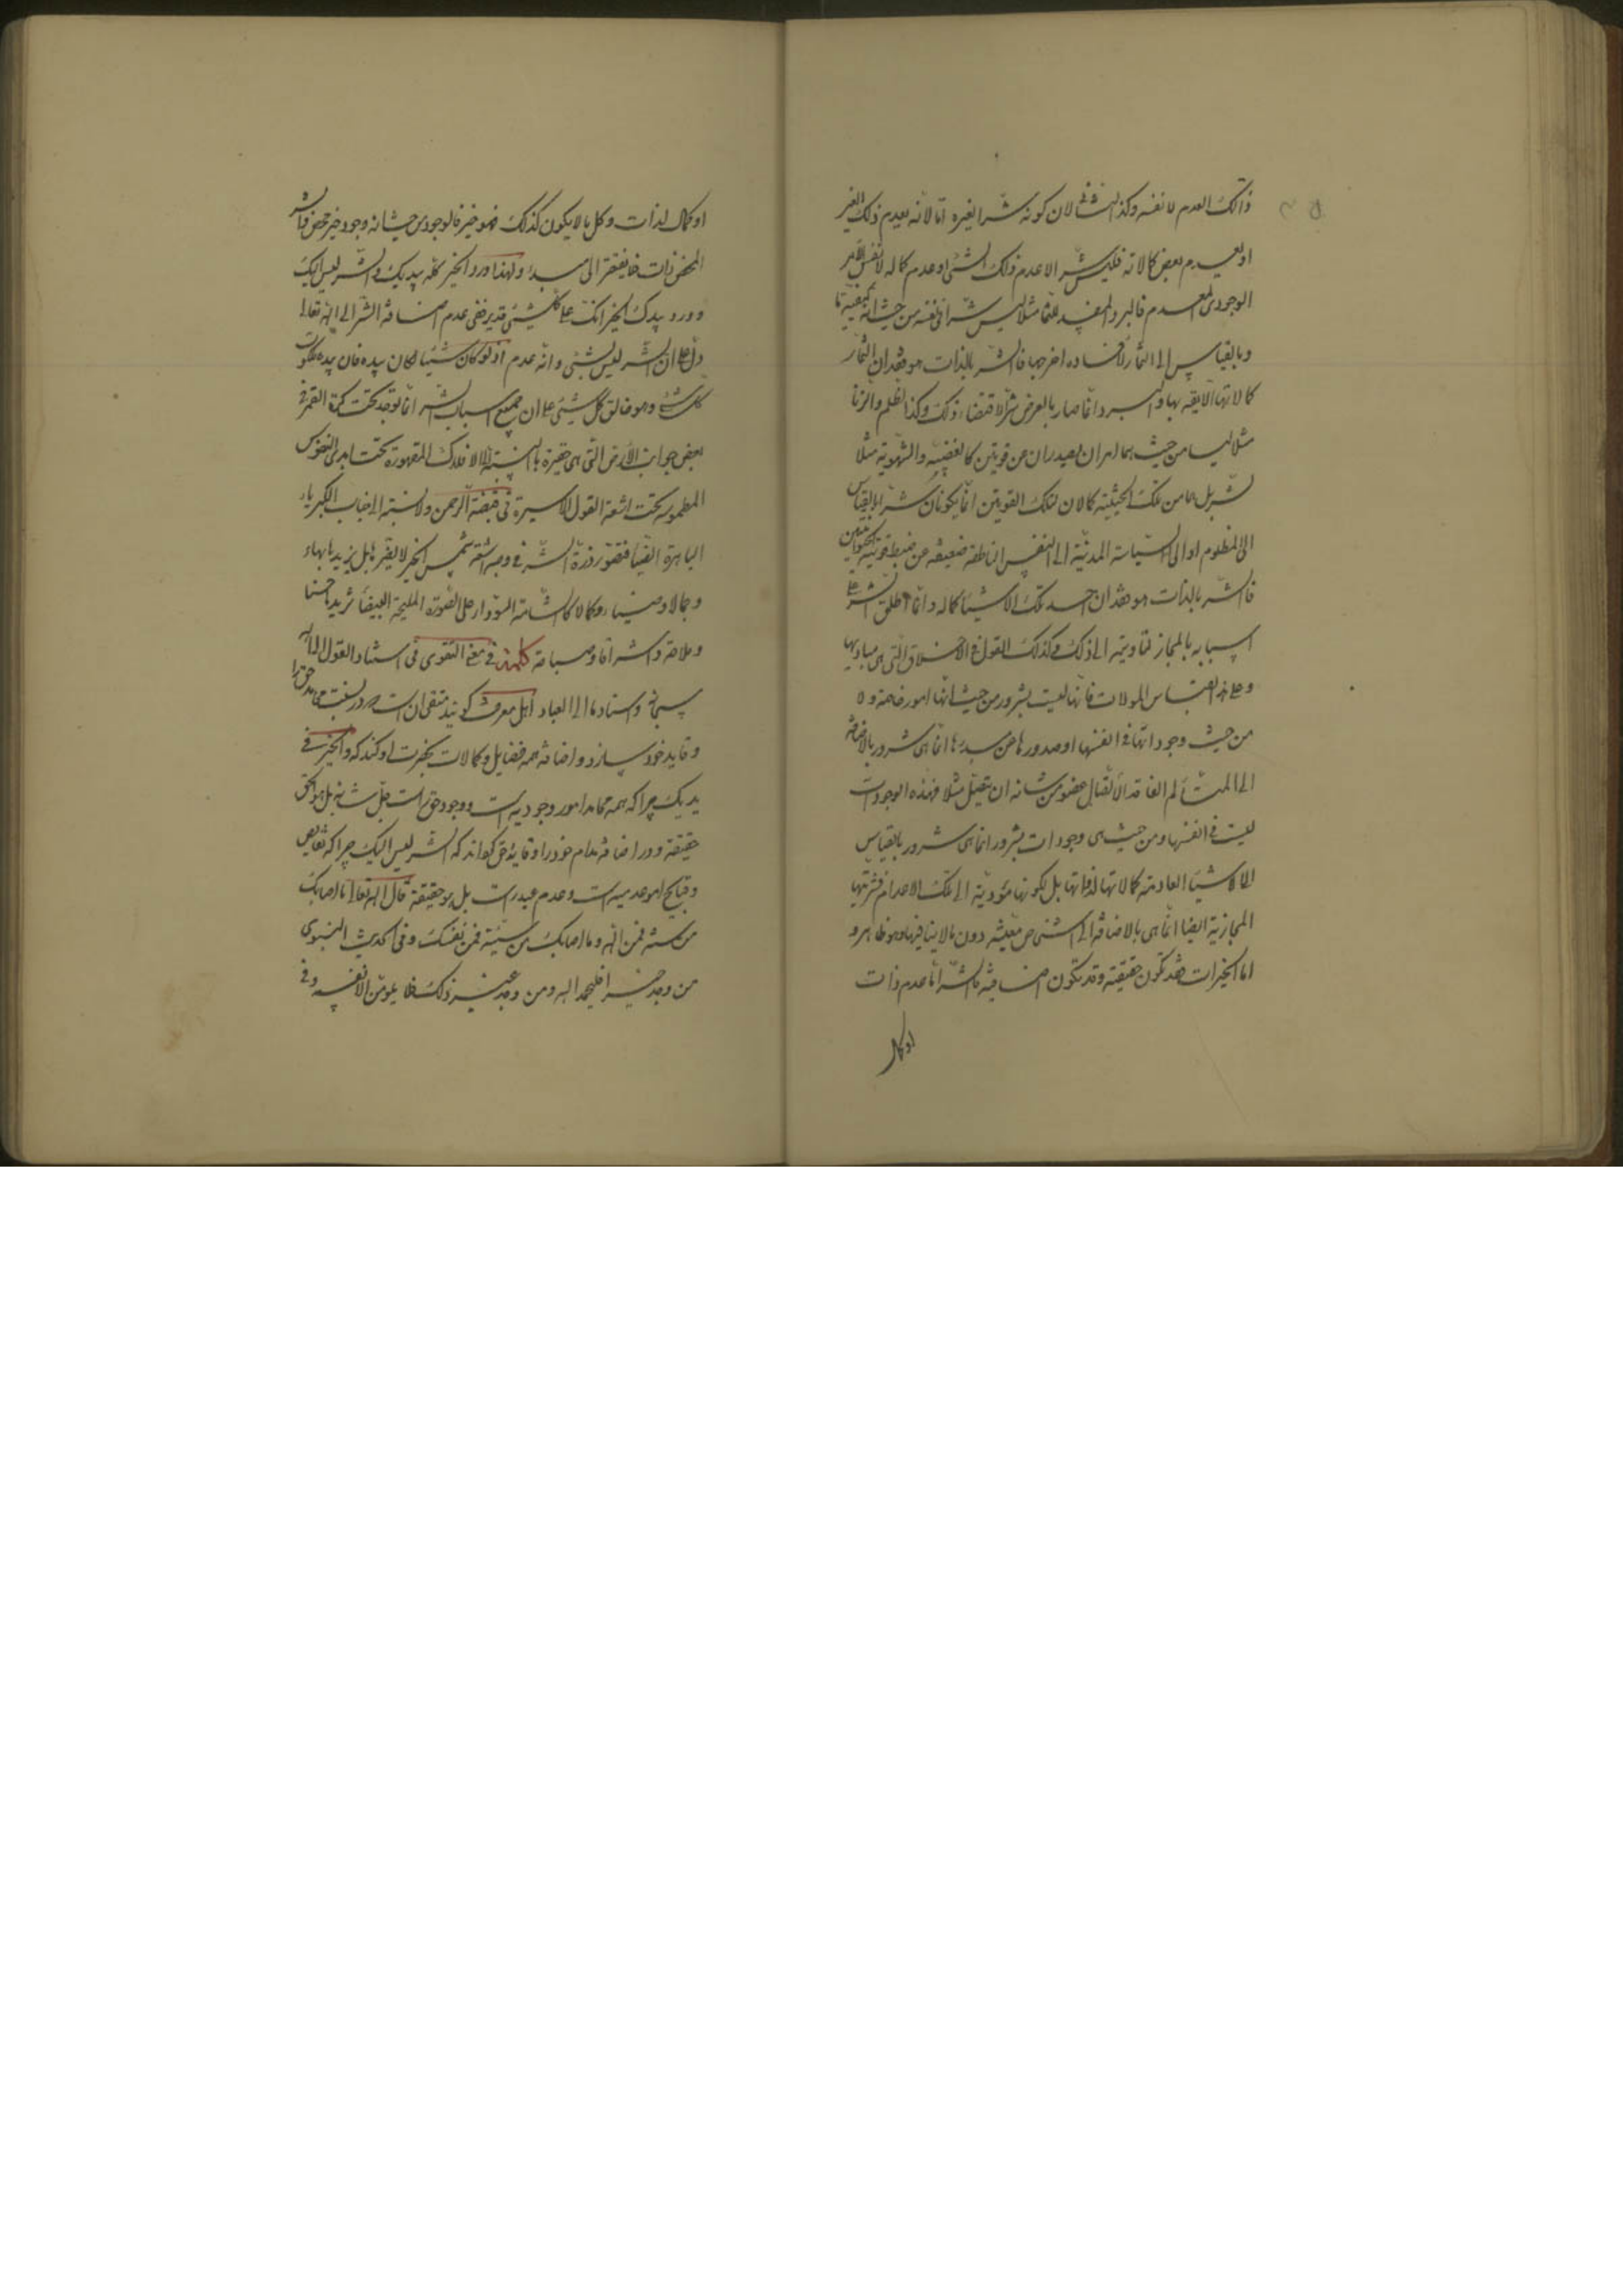 ذالک العدم لا نفسه وکذا الشافی لان کونه شرا لغیره اما لانه یعدم ذلک الغیر
او یعدم بعض کمالاته فلیس الشر الا عدم ذلک الشئ او عدم کماله لا نفس الامر
الوجودی المعدم فالبرد المفسد للثمار مثلا لیس شرا فی نفسه من حیث انه کیفیة ما
وبالقیاس الی الثمار لافساده امزجها فالشر بالذات هو فقدان الثمار
کمالاتها اللایقه بها والبرد انما صار بالعرض شرا لاقتضاء ذلک وکذا الظلم والزنا
مثلا لیسا من حیث هما امران یصدران عن قوتین کالغضبیه والشهویة مثلا
بشر بل هما من تلک الحیثیة کمالان لتلک القوتین انما یکونان شرا بالقیاس
الی المظلوم او الی السیاسة المدنیة او الی النفس الناطقه ضعیفه عن ضبط قوتیه الحیوانیتین
فالشر بالذات هو فقدان احد تلک الاشیاء کماله وانما اطلق الشر علی
اسبابه بالمجاز لتادیتها الی ذلک وکذلک القول فی الاخلاق التی هی مبادیها
وعلی هذا القیاس المولات فانها لیست بشرور من حیث انها امور خاصة ولا
من حیث وجوداتها فی انفسها او صدورها عن مبدءها انما هی شرور بالاضافه
الی المتألم الفاقد لاتصال عضو من شانه ان یتصل مثلا فهذه الوجودات
لیست فی انفسها ومن حیث هی وجودات بشرور انما هی شرور بالقیاس
الی الاشیاء العادمة کمالاتها لا لذاتها بل لکونها مؤدیة الی تلک الاعدام فشریتها
المجازیة ایضا انما هی بالاضافة الی اشخاص معینة دون ما لاینافیها وهو ظاهر و
اما الخیرات فقد تکون حقیقة وقد تکون اضافیة فالشر اما عدم ذات
او کمال
او کمال لذات وکل ما لا یکون کذلک فهو خیر فالوجود من حیث انه وجود خیر محض والشر
المحض ذات فلا یفتقر الی مبدء ولهذا ورد الخیر کله بیدیک والشر لیس الیک
وورد بیدک الخیر انک علی کل شیئ قدیر ففی عدم اضافة الشر الی الله تعالی
دل علی ان الشر لیس بشئ وانه عدم اذ لو کان شیئا لکان بیده فان بیده ملکوت
کل شئ وهو خالق کل شیئ علی ان جمیع اسباب الشر انما توجد تحت کرة القمر فی
بعض جوانب الارض التی هی حقیرة بالنسبة الی الافلاک المقهورة تحت ایدی النفوس
المطموسه تحت اشعة العقول الاسیرة فی قبضة الرحمن ولا نسبة الی جناب الکبریاء
الباهرة ایضا فتصور ذرة الشر فی وجه اشعة شمس الخیر لا یضرها بل یزیدها بهاء
وجمالا وضیاء وکمالا کالشامة السوداء علی الصورة الملیحة البیضاء تزیدها حسنا
وملاحة واشراقا وصباحة کلمة فی معنی التقوی فی اسناد القول الی الله
سبحانه واسنادها الی العباد اهل معرفت گویند متقی ان است که در نسبت محامد حق را
وقایه خود سازد واضافه همه فضایل وکمالات بحضرت او کند که والخیر فی
یدیک چرا که همه محامد امور وجودیه است ووجود حق است جل شانه بل هو الحق
حقیقة ودر اضافه مذام خود را وقایه حق گرداند که الشر لیس الیک چرا که نقایص
وقبایح امور عدمیه است وعدم عبد راست بل هو حقیقة قال الله تعالی ما اصابک
من حسنة فمن الله وما اصابک من سیئة فمن نفسک وفی الحدیث النبوی
من وجد خیرا فلیحمد الله ومن وجد غیر ذلک فلا یلومن الا نفسه وفی